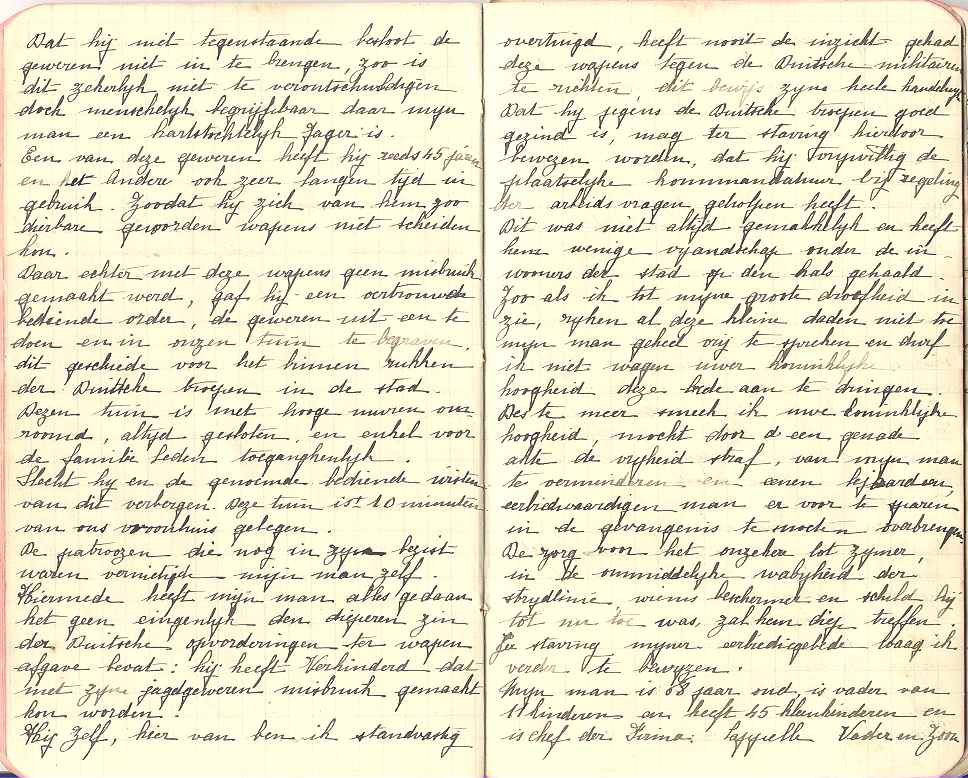 Dat hij niet tegenstaande besloot de
geweren niet in te brengen, zoo is
dit zekerlyk niet te verontschuldigen
doch menschelyk begrijfbaar daar myn
man een hartstochtelyk Jager is.
Een van deze geweren heeft hij reeds 45 jaren
en het Andere ook zeer langen tyd in
gebruik. Zoodat hij zich van hem zoo
dierbare geworden wapens niet scheiden
kon.
Daar echter met deze wapens geen misbruik
gemaakt werd, gaf hij een vertrouwde
bediende order, de geweren uit een te
doen en in onzen tuin te begraven.
dit geschiede voor het binnen rukken
der Duitsche troepen in de stad.
Dezen tuin is met hooge muren om
roomd, altyd gesloten, en enkel voor
de familie Leden toeganghenlyk.
Slecht hij en de genoemde bediende wisten
van dit verbergen. Deze tuin ist 10 minuten
van ons woonhuis gelegen.
De patroozen die nog in zyn bezit
waren vernietigde mijn man zelf.
Hiermede heeft mijn man alles gedaan
het geen eingenlyk den dieperen zin
der Duitsche opvorderingen ter wapen
afgave bevat: hij heeft Verhinderd dat
met zyne jagdgeweren misbruik gemaakt
kon worden.
Hij Zelf, hier van ben ik standvastig
overtuigd, heeft nooit de inzicht gehad
deze wapens tegen de Duitsche militairen
te richten, dit bewijs zyne heele handelwyse
Dat hy jegens de Duitsche troepen goed
gezind is, mag ter staving hierdoor
bewezen worden, dat hij Vrywillig de
plaatselyke kommandatuur bij regeling
der arbeids vragen geholpen heeft.
Dit was niet altijd gemakkelyk en heeft
hem wenige vyandschap onder de in-
woners der stad op den hals gehaald.
Zoo als ik tot myne groote droefheid in
zie, ryken al deze kleine daden niet toe
mijn man geheel vry te spreken en durf
ik niet wagen uwer koninklyke
hoogheid deze bede aan te dringen.
Des te meer smeek ik uwe koninklyke
hoogheid, mocht door d een genade
akte de vryheid straf, van myn man
te verminderen en eenen bejaarden,
eerbiedwaardigen man er voor te sparen
in de gevangenis te moeten overbrengen.
De zorg voor het onzekere lot zyner,
in de ommiddelyke nabyheid der
strydlinie, wiens beschermer en schild hij
tot nu toe was, zal hem diep treffen.
Je staving myner eerbiedigebede waag ik
verder te bewyzen.
Myn man is 68 jaar oud, is vader van
11 kinderen en heeft 45 kleinkinderen en
is chef der Firma: Vader en Zoon